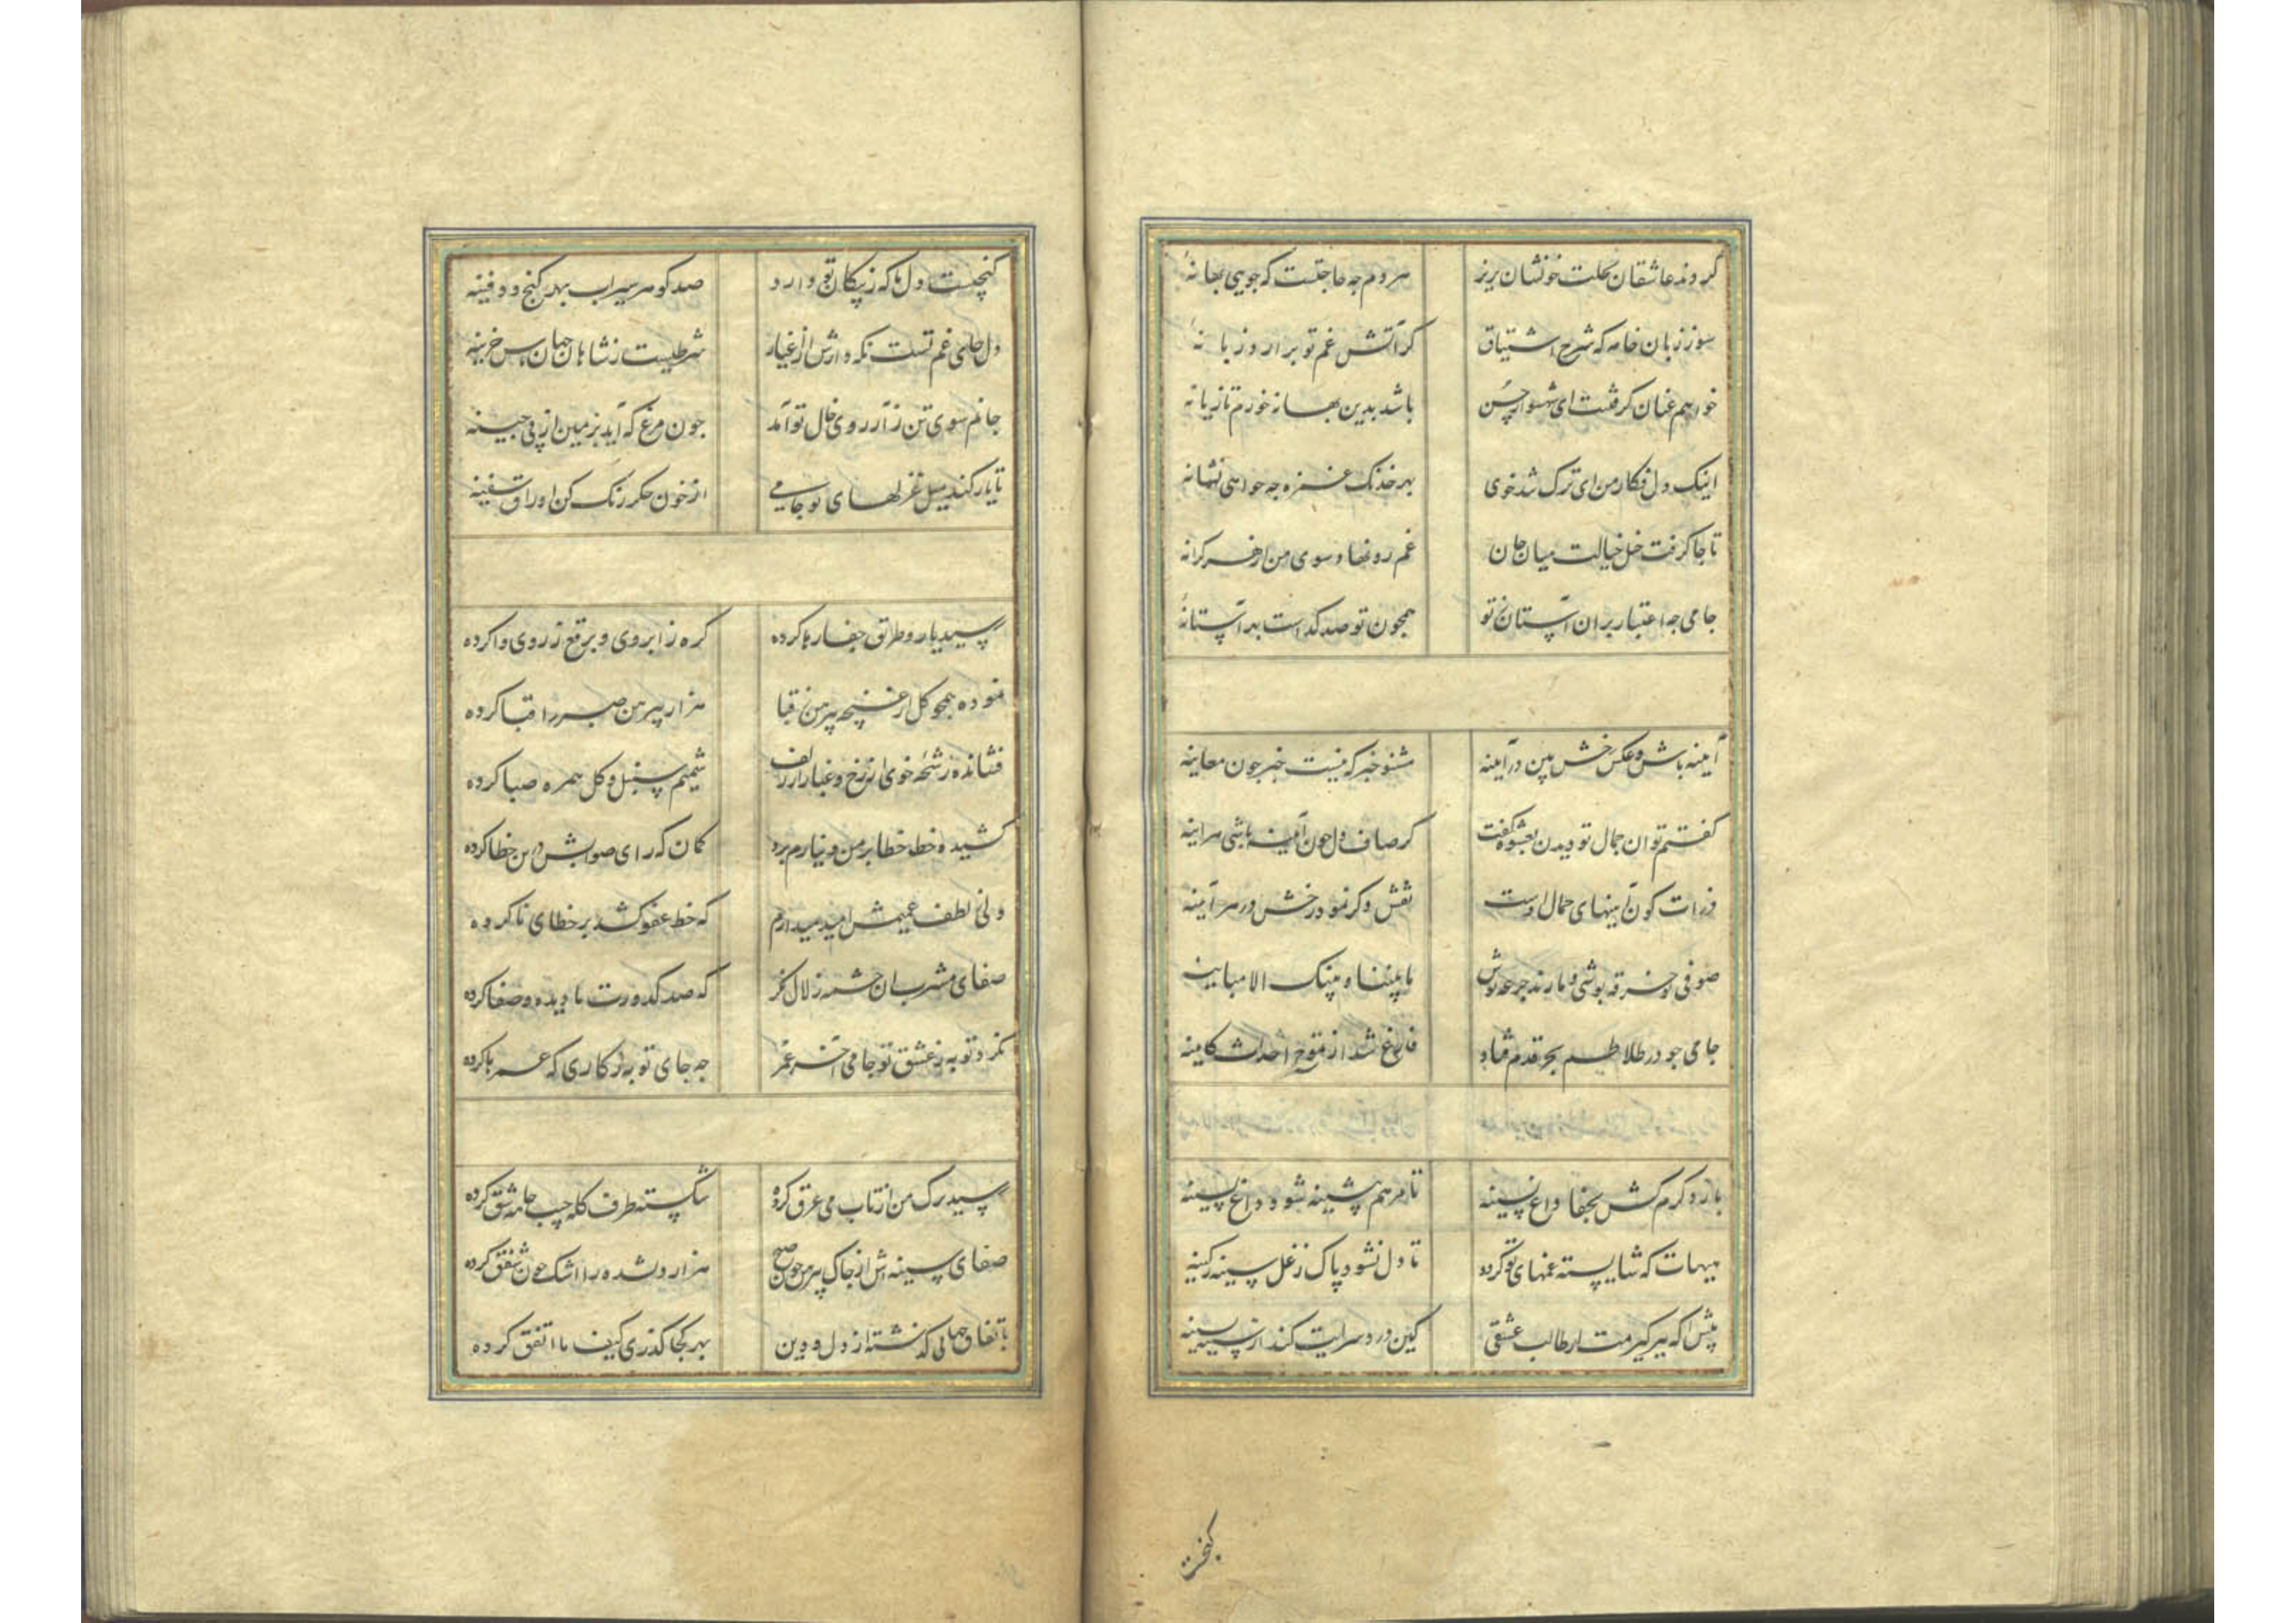 کردند عاشقان بحلت خونشان بریز هر دم چه حاجتست که جویی بهانهٔ
سوزد زبان خامه که شرح اشتیاق کز آتش غم تو برآرد زبانهٔ
خواهم عنان گرفتنت ای شهسوار حسن باشد بدین بهانه خورم تازیانهٔ
اینک دل فکار من ای ترک تندخوی بهر خدنگ غمزه چه خواهی نشانهٔ
تا جا گرفت خیل خیالت میان جان غم رو نهاد سوی من از هر کرانهٔ
جامی چه اعتبار بر آن آستان تو همچون تو صد گداست بهر آستانهٔ
آینه باش و عکس رخش بین در آینه مشنو خبر که نیست خبر چون معاینه
گفتم توان جمال تو دیدن بعشوه گفت گر صاف دل چون آینه باشی هر آینه
ذرات کون آینهای جمال اوست نقش دگر نمود رخش در هر آینه
صوفی و خرقه پوشی و ما رند جرعه نوش ما بیننا و بینک الا مباینه
جامی چو در تلاطم بحر قدم فتاد فارغ شد از تموج احداث کاینه
باز رد کرم کش بجفا داغ بسینه تا مرهم پشینه شود داغ پسینه
هیهات که شایسته غمهای تو گردد تا دل نشود پاک ز غل سینه ز کینه
پیش آ که پیر گیرمت ار طالب عشقی کین درد سرایت کند از سینه بسینه
گنجست
گنجست دل ما که ز پیکان تو دارد صد گوهر سیراب بهر گنج و دفینه
دل جای غم تست نگه دارش از اغیار شرطیست ز شاهان جهان پاس خزینه
جانم سوی تن ز آرزوی خال تو آمد چون مرغ که آید بزمین از پی چینه
تا یار کند میل غزلهای تو جامی از خون جگر رنگ کن اوراق سفینه
رسید یار و طریق جفا رها کرده گره ز ابروی و برقع ز روی وا کرده
نموده همچو گل از غنچه پیرهن ز قبا هزار پیرهن صبر را قبا کرده
فشانده رشحه خوی از رخ و غبار از زلف شمیم سنبل و گل همره صبا کرده
کشیده خط خطا بر من و نیارم برد گمان که رای صوابش درین خطا کرده
ولی ز لطف عمیمش امید میدارم که خط عفو کشد بر خطای ناکرده
صفای مشرب آن چشمه زلال نگر که صد کدورت ما دیده و صفا کرده
نکرد توبه ز عشق تو جامی آخر عمر چه جای توبه ز کاری که عمرها کرده
رسید ترک من از تاب می عرق کرده شکسته طرف کله جیب جامه شق کرده
صفای سینه اش از چاک پیرهن چون صبح هزار دلشده را اشک چون شفق کرده
باتفاق جهانی گذشته از دل و دین بهر کجا گذری کیف ما اتفق کرده